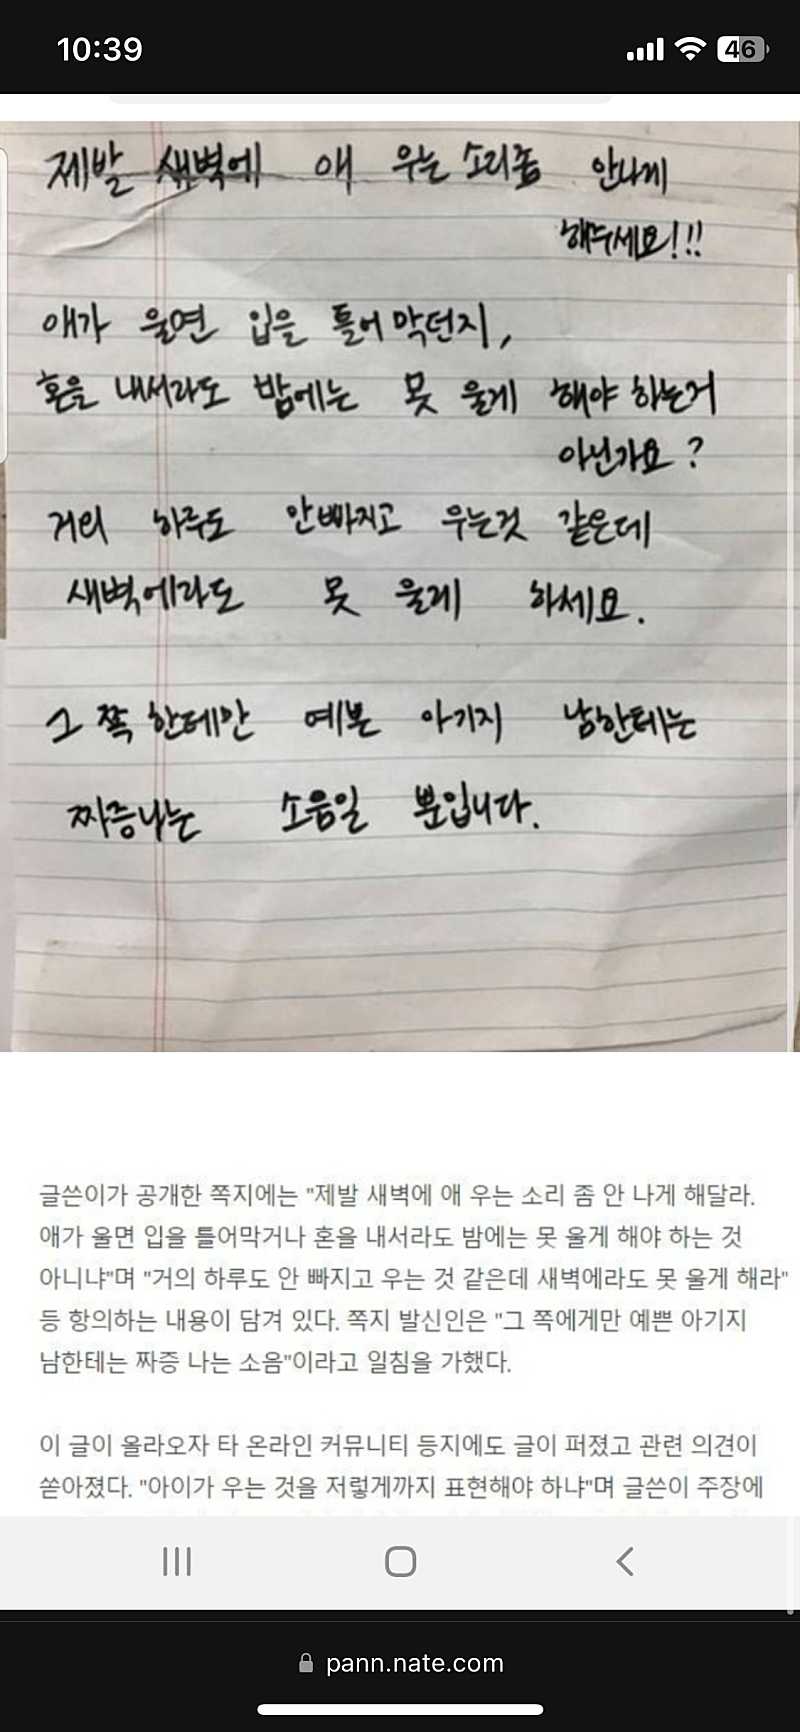 10:39
46
제발 새벽에 애 우는 소리좀 안나게
해주세요!!!
애가 울면 입을 틀어막던지,
혼을 내서라도 밤에는 못 울게 해야 하는거
아닌가요?
거의 하루도 안빠지고 우는것 같은데
새벽에라도 못 울게 하세요.
그 쪽 한테만 예쁜 아기지 남한테는
짜증나는 소음일 뿐입니다.
글쓴이가 공개한 쪽지에는 "제발 새벽에 애 우는 소리 좀 안 나게 해달라.
애가 울면 입을 틀어막거나 혼을 내서라도 밤에는 못 울게 해야 하는 것
아니냐"며 "거의 하루도 안 빠지고 우는 것 같은데 새벽에라도 못 울게 해라"
등 항의하는 내용이 담겨 있다. 쪽지 발신인은 "그 쪽에게만 예쁜 아기지
남한테는 짜증 나는 소음"이라고 일침을 가했다.
이 글이 올라오자 타 온라인 커뮤니티 등지에도 글이 퍼졌고 관련 의견이
쏟아졌다. "아이가 우는 것을 저렇게까지 표현해야 하냐"며 글쓴이 주장에
pann.nate.com